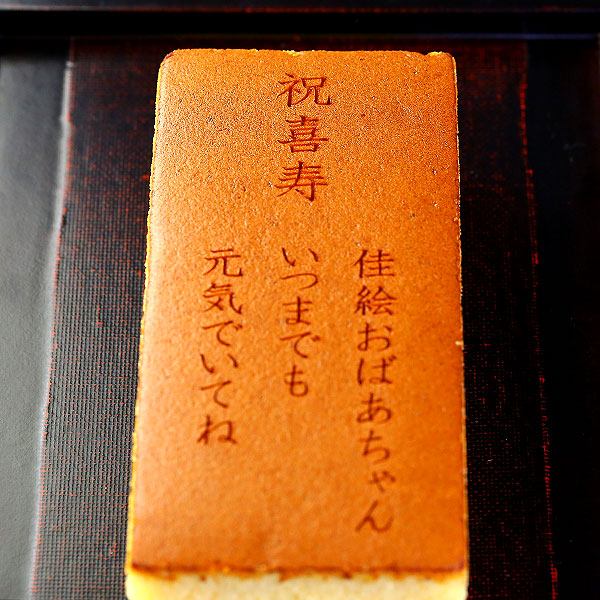 祝喜寿
佳絵おばあちゃん
いつまでも
元気でいてね